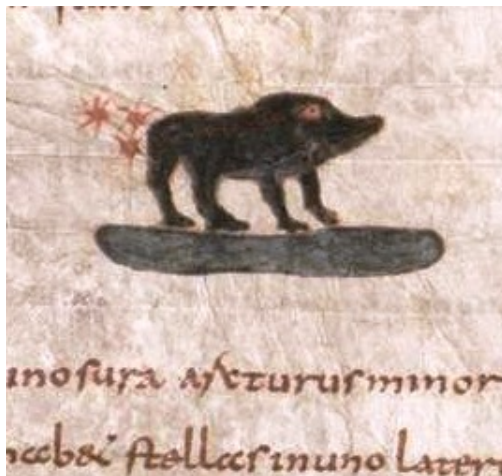 inosura arcturus minor
habet stellas in uno later